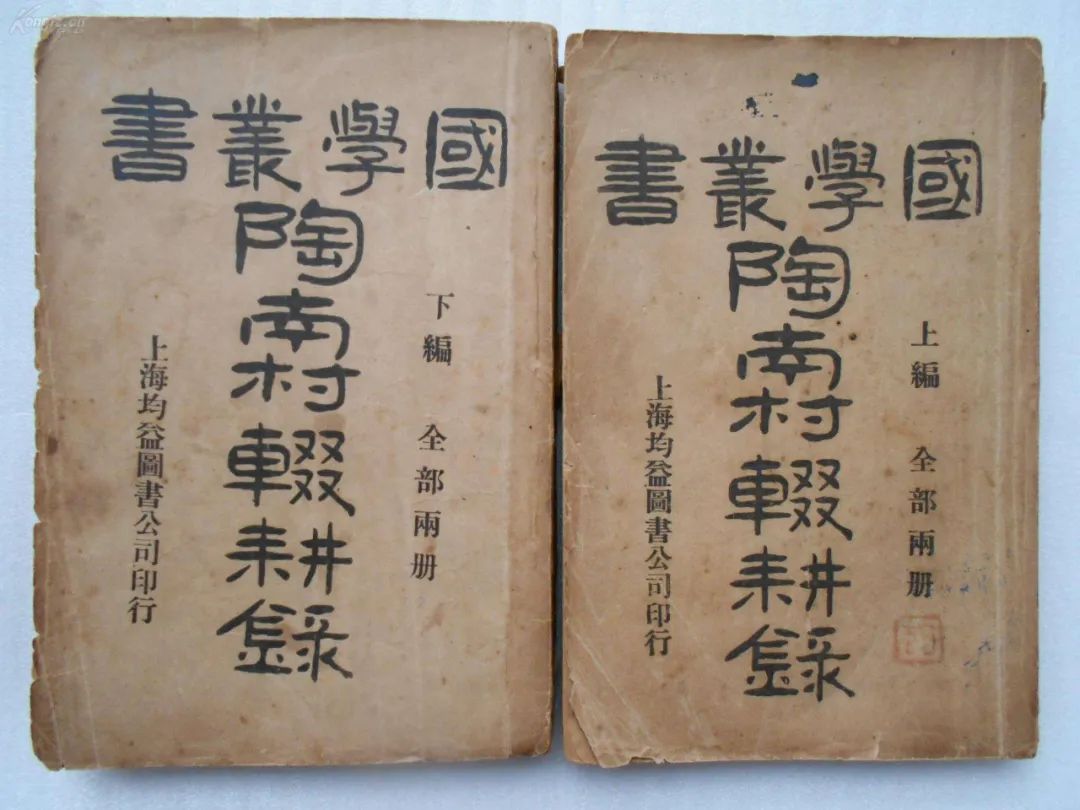 國學叢書
上編 全部兩册
陶南村輟耕錄
上海均益圖書公司印行
國學叢書
下編 全部兩册
陶南村輟耕錄
上海均益圖書公司印行